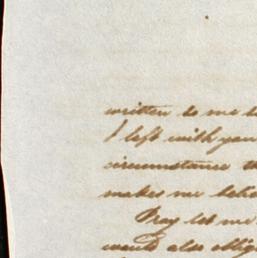 written to me
I left with you
circumstance
makes me
Pray let me
would also